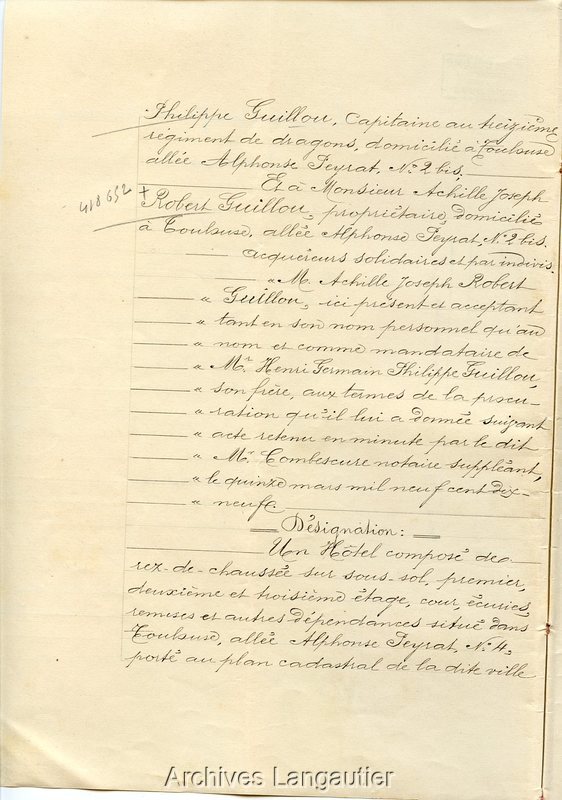 Philippe Guillou, Capitaine au treizième
régiment de dragons, domicilié à Toulouse
allée Alphonse Peyrat, No 2 bis.
Et à Monsieur Achille Joseph
418652 +
Robert Guillou, propriétaire, domicilié
à Toulouse, allée Alphonse Peyrat, No 2 bis.
acquéreurs solidaires et par indivis.
" M. Achille Joseph Robert
" Guillou, ici présent et acceptant
" tant en son nom personnel qu'au
" nom et comme mandataire de
" Mr. Henri Germain Philippe Guillou,
" son frère, aux termes de la procu-
" ration qu'il lui a donnée suivant
" acte retenu en minute par le dit
" Me Combescure notaire suppléant,
" le quinze mars mil neuf cent dix-
" neuf.
Désignation:
Un Hôtel composé de
rez-de-chaussée sur sous-sol, premier,
deuxième et troisième étage, cour, écuries,
remises et autres dépendances situé dans
Toulouse, allée Alphonse Peyrat, No 4,
porté au plan cadastral de la dite ville
Archives Langautier